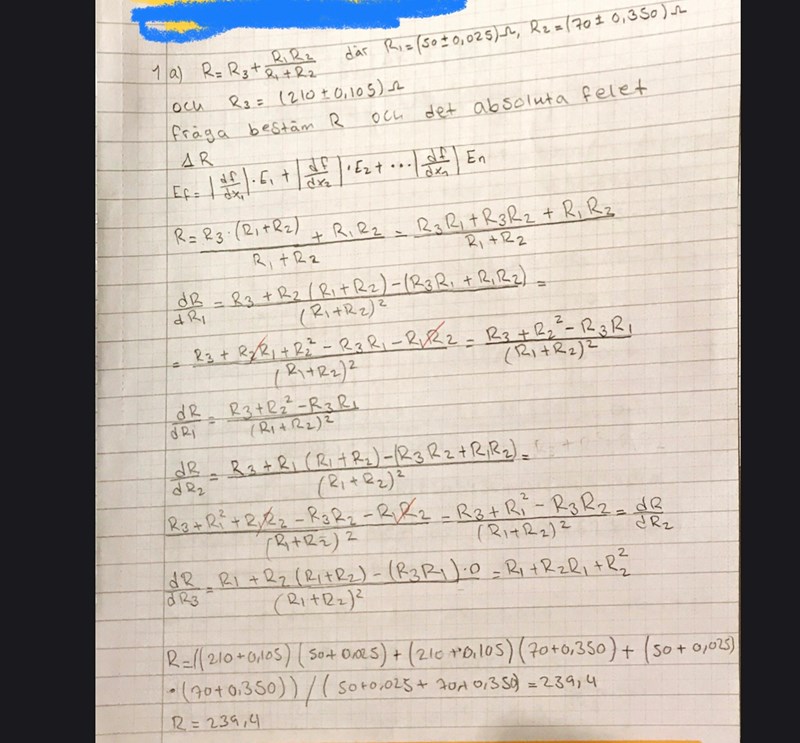 1 a) R = R₃ + R₁R₂/(R₁+R₂) där R₁ = (50 ± 0,025)Ω, R₂ = (70 ± 0,350)Ω
och R₃ = (210 ± 0,105)Ω
fråga bestäm R och det absoluta felet
ΔR
Ef = |df/dx₁|·E₁ + |df/dx₂|·E₂ + ... |df/dxₙ| Eₙ
R = (R₃·(R₁+R₂))/(R₁+R₂) + R₁R₂ = (R₃R₁ + R₃R₂ + R₁R₂)/(R₁+R₂)
dR/dR₁ = (R₃ + R₂(R₁+R₂) - (R₃R₁ + R₁R₂))/(R₁+R₂)² =
= (R₃ + R₂R₁ + R₂² - R₃R₁ - R₁R₂)/(R₁+R₂)² = (R₃ + R₂² - R₃R₁)/(R₁+R₂)²
dR/dR₁ = (R₃ + R₂² - R₃R₁)/(R₁+R₂)²
dR/dR₂ = (R₃ + R₁(R₁+R₂) - (R₃R₂ + R₁R₂))/(R₁+R₂)² =
(R₃ + R₁² + R₁R₂ - R₃R₂ - R₁R₂)/(R₁+R₂)² = (R₃ + R₁² - R₃R₂)/(R₁+R₂)² = dR/dR₂
dR/dR₃ = (R₁ + R₂(R₁+R₂) - (R₃R₁)·0)/(R₁+R₂)² = R₁ + R₂R₁ + R₂²
R = ((210+0,105)(50+0,025) + (210+0,105)(70+0,350) + (50+0,025)
·(70+0,350)) / (50+0,025 + 70+0,350) = 239,4
R = 239,4